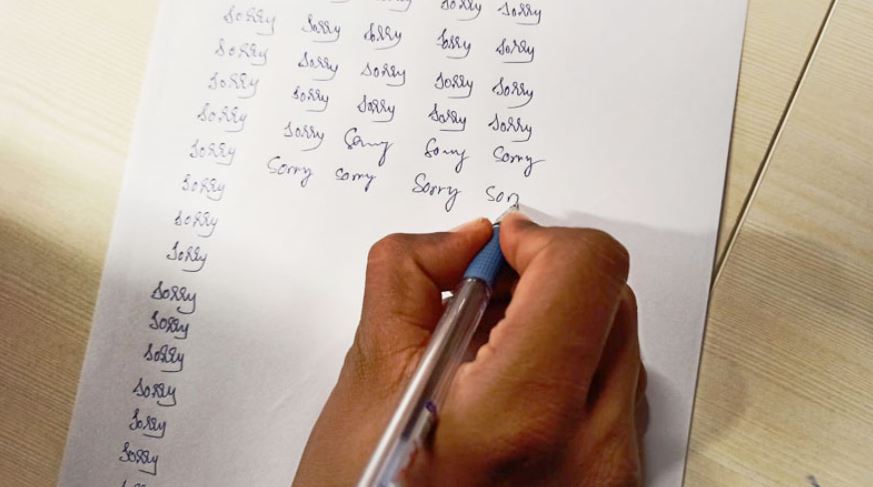 Sorry Sorry
Sorry Sorry Sorry Sorry Sorry
Sorry Sorry Sorry Sorry Sorry
Sorry Sorry Sorry Sorry Sorry
Sorry Sorry Sorry Sorry Sorry
Sorry Sorry Sorry Sorry Sor
Sorry
Sorry
Sorry
Sorry
Sorry
Sorry
Sorry
Sorry
Sorry